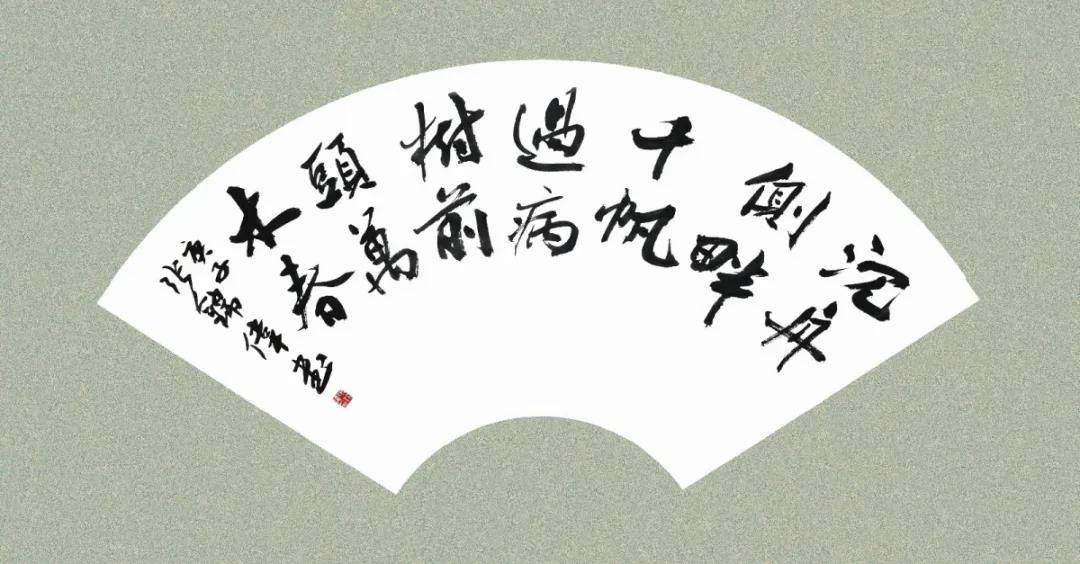 沉舟
側畔
千帆
過病
樹前
頭萬
木春
庚子
張錦偉書